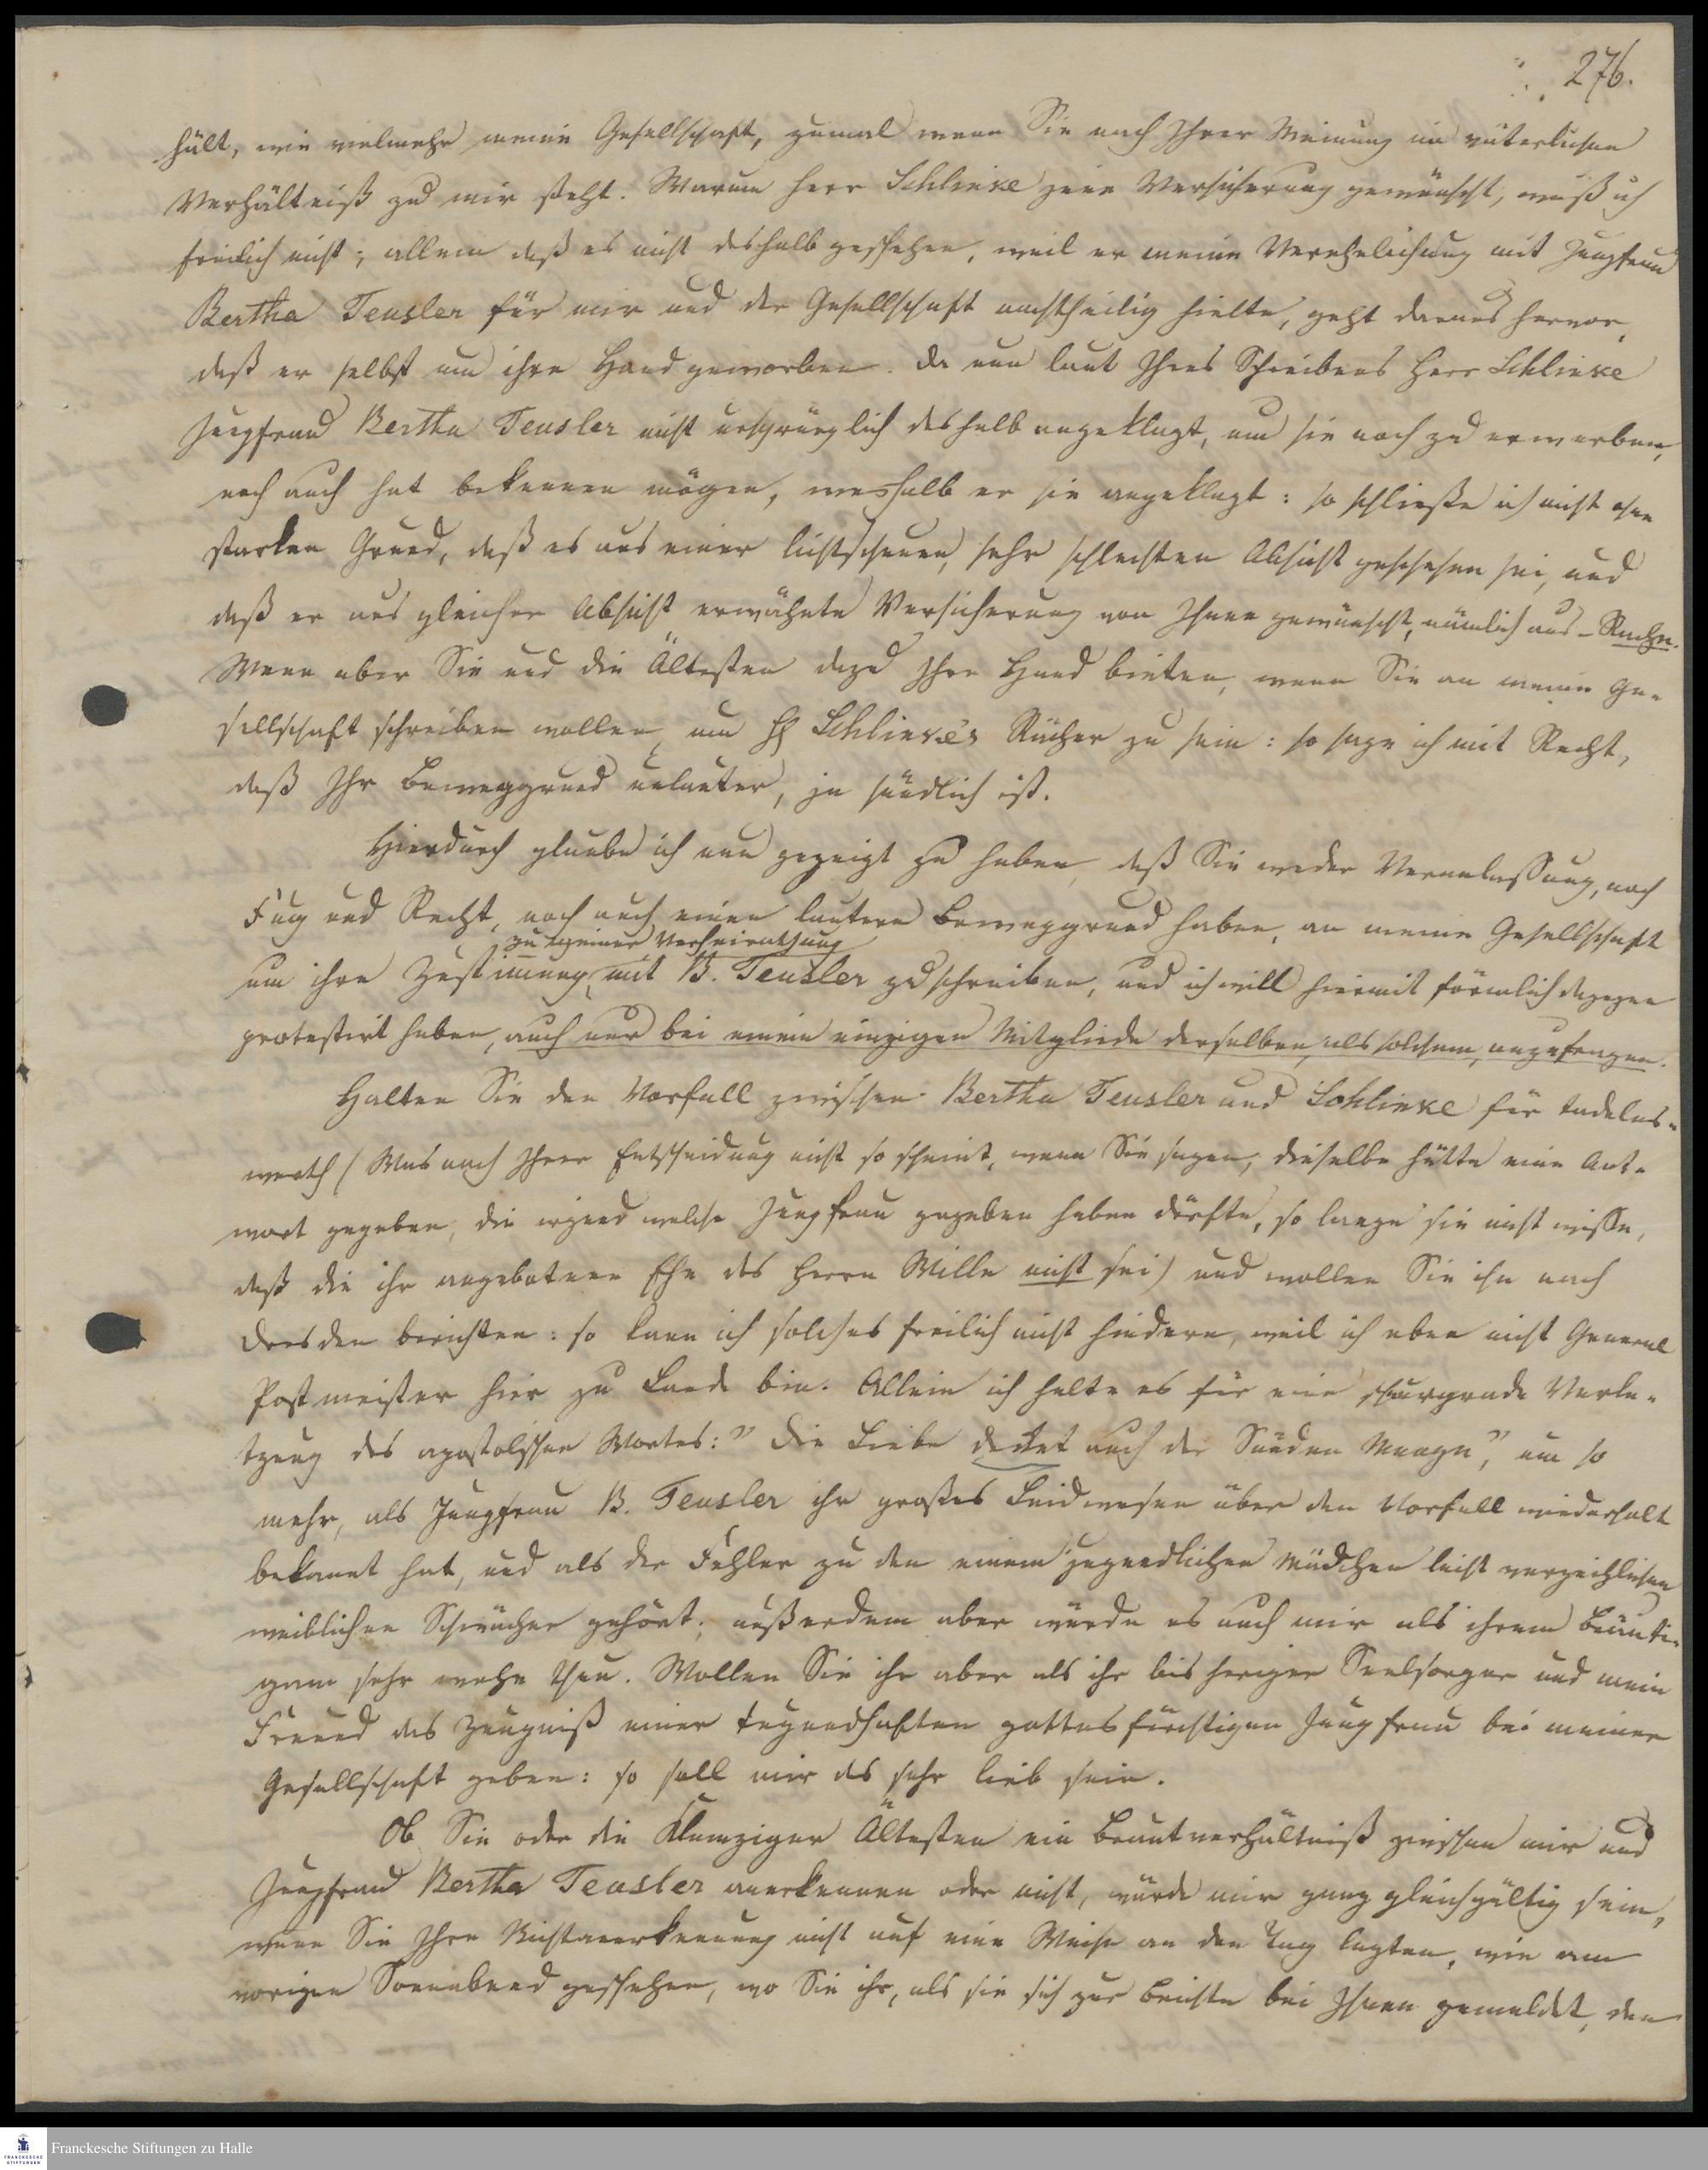 276.
hält, wie vielmehr meine Gesellschaft, zumal wenn Sie nach Ihrer Meinung im väterlichen
Verhältniß zu mir steht. Warum Herr Schlinke jene Versicherung gewünscht, weiß ich
freilich nicht; allein daß es nicht deshalb geschehen, weil er meine Verehelichung mit Jungfrau
Bertha Teusler für mir und der Gesellschaft nachtheilig hielte, geht daraus hervor,
daß er selbst um ihre Hand geworben. Da nun laut Ihres Schreibens Herr Schlinke
Jungfrau Bertha Teusler nicht ursprünglich deshalb angeklagt, um sie noch zu erwerben,
noch auch hat bekennen mögen, weshalb er sie angeklagt: so schließe ich nicht ohne
starken Grund, daß es aus einer lichtscheuen, sehr schlechten Absicht geschehen sei, und
daß er aus gleicher Absicht erwähnte Versicherung von Ihnen gewünscht, nämlich aus – Rache.
Wenn aber Sie und die Ältesten dazu Ihre Hand bieten, wenn Sie an meine Ge-
sellschaft schreiben wollen, um H Schlinke's Rächer zu sein: so sage ich mit Recht,
daß Ihr Beweggrund unlauter, ja sündlich ist.
Hierdurch glaube ich nun gezeigt zu haben, daß Sie weder Veranlassung, noch
Fug und Recht, noch auch einen lautern Beweggrund haben, an meine Gesellschaft
zu meiner Verheirathung
um ihre Zustimmung mit B. Teusler zu schreiben, und ich will hiermit förmlich dagegen
protestirt haben, auch nur bei einem einzigen Mitgliede derselben, als solchem, anzufragen.
Halten Sie den Vorfall zwischen Bertha Teusler und Schlinke für tadelns-
werth (Was nach Ihrer Entscheidung nicht so scheint, wenn Sie sagen, dieselbe hätte eine Ant-
wort gegeben, die irgend welche Jungfrau gegeben haben dürfte, so lange sie nicht wisse,
daß die ihr angebotene Ehe des Herrn Wille nicht sei) und wollen Sie ihn nach
Dresden berichten: so kann ich solches freilich nicht hindern, weil ich eben nicht General
Postmeister hier zu Lande bin. Allein ich halte es für eine schnurgrade Verle-
tzung des apostolischen Wortes: "Die Liebe decket auch der Sünden Menge", um so
mehr, als Jungfrau B. Teusler ihr großes Leidwesen über den Vorfall wiederholt
bekannt hat, und als der Fehler zu den einem jugendlichen Mädchen leicht verzeihlichen
weiblichen Schwächen gehört; außerdem aber würde es auch mir als ihrem Bräuti-
gam sehr wehe thun. Wollen Sie ihr aber als ihr bisheriger Seelsorger und mein
Freund das Zeugniß einer tugendhaften gottesfürchtigen Jungfrau bei meiner
Gesellschaft geben: so soll mir es sehr lieb sein.
Ob Sie oder die Klemziger Ältesten ein Brautverhältniß zwischen mir und
Jungfrau Bertha Teusler anerkennen oder nicht, würde mir ganz gleichgültig sein,
wenn Sie Ihre Nichtanerkennung nicht auf eine Weise an den Tag legten, wie am
vorigen Sonnabend geschehen, wo Sie ihr, als sie sich zur Beichte bei Ihnen gemeldet, den
Franckesche Stiftungen zu Halle
FRANCKESCHE
STIFTUNGEN